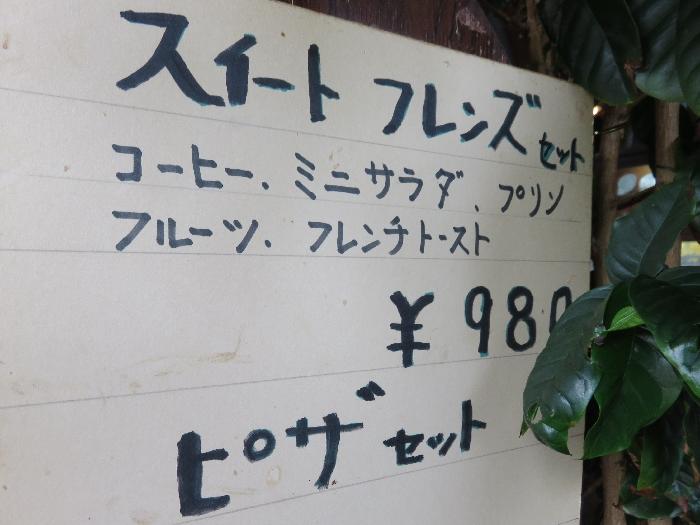 スイート フレンズ セット
コーヒー、ミニサラダ、プリン
フルーツ、フレンチトースト
¥980
ピザ セット